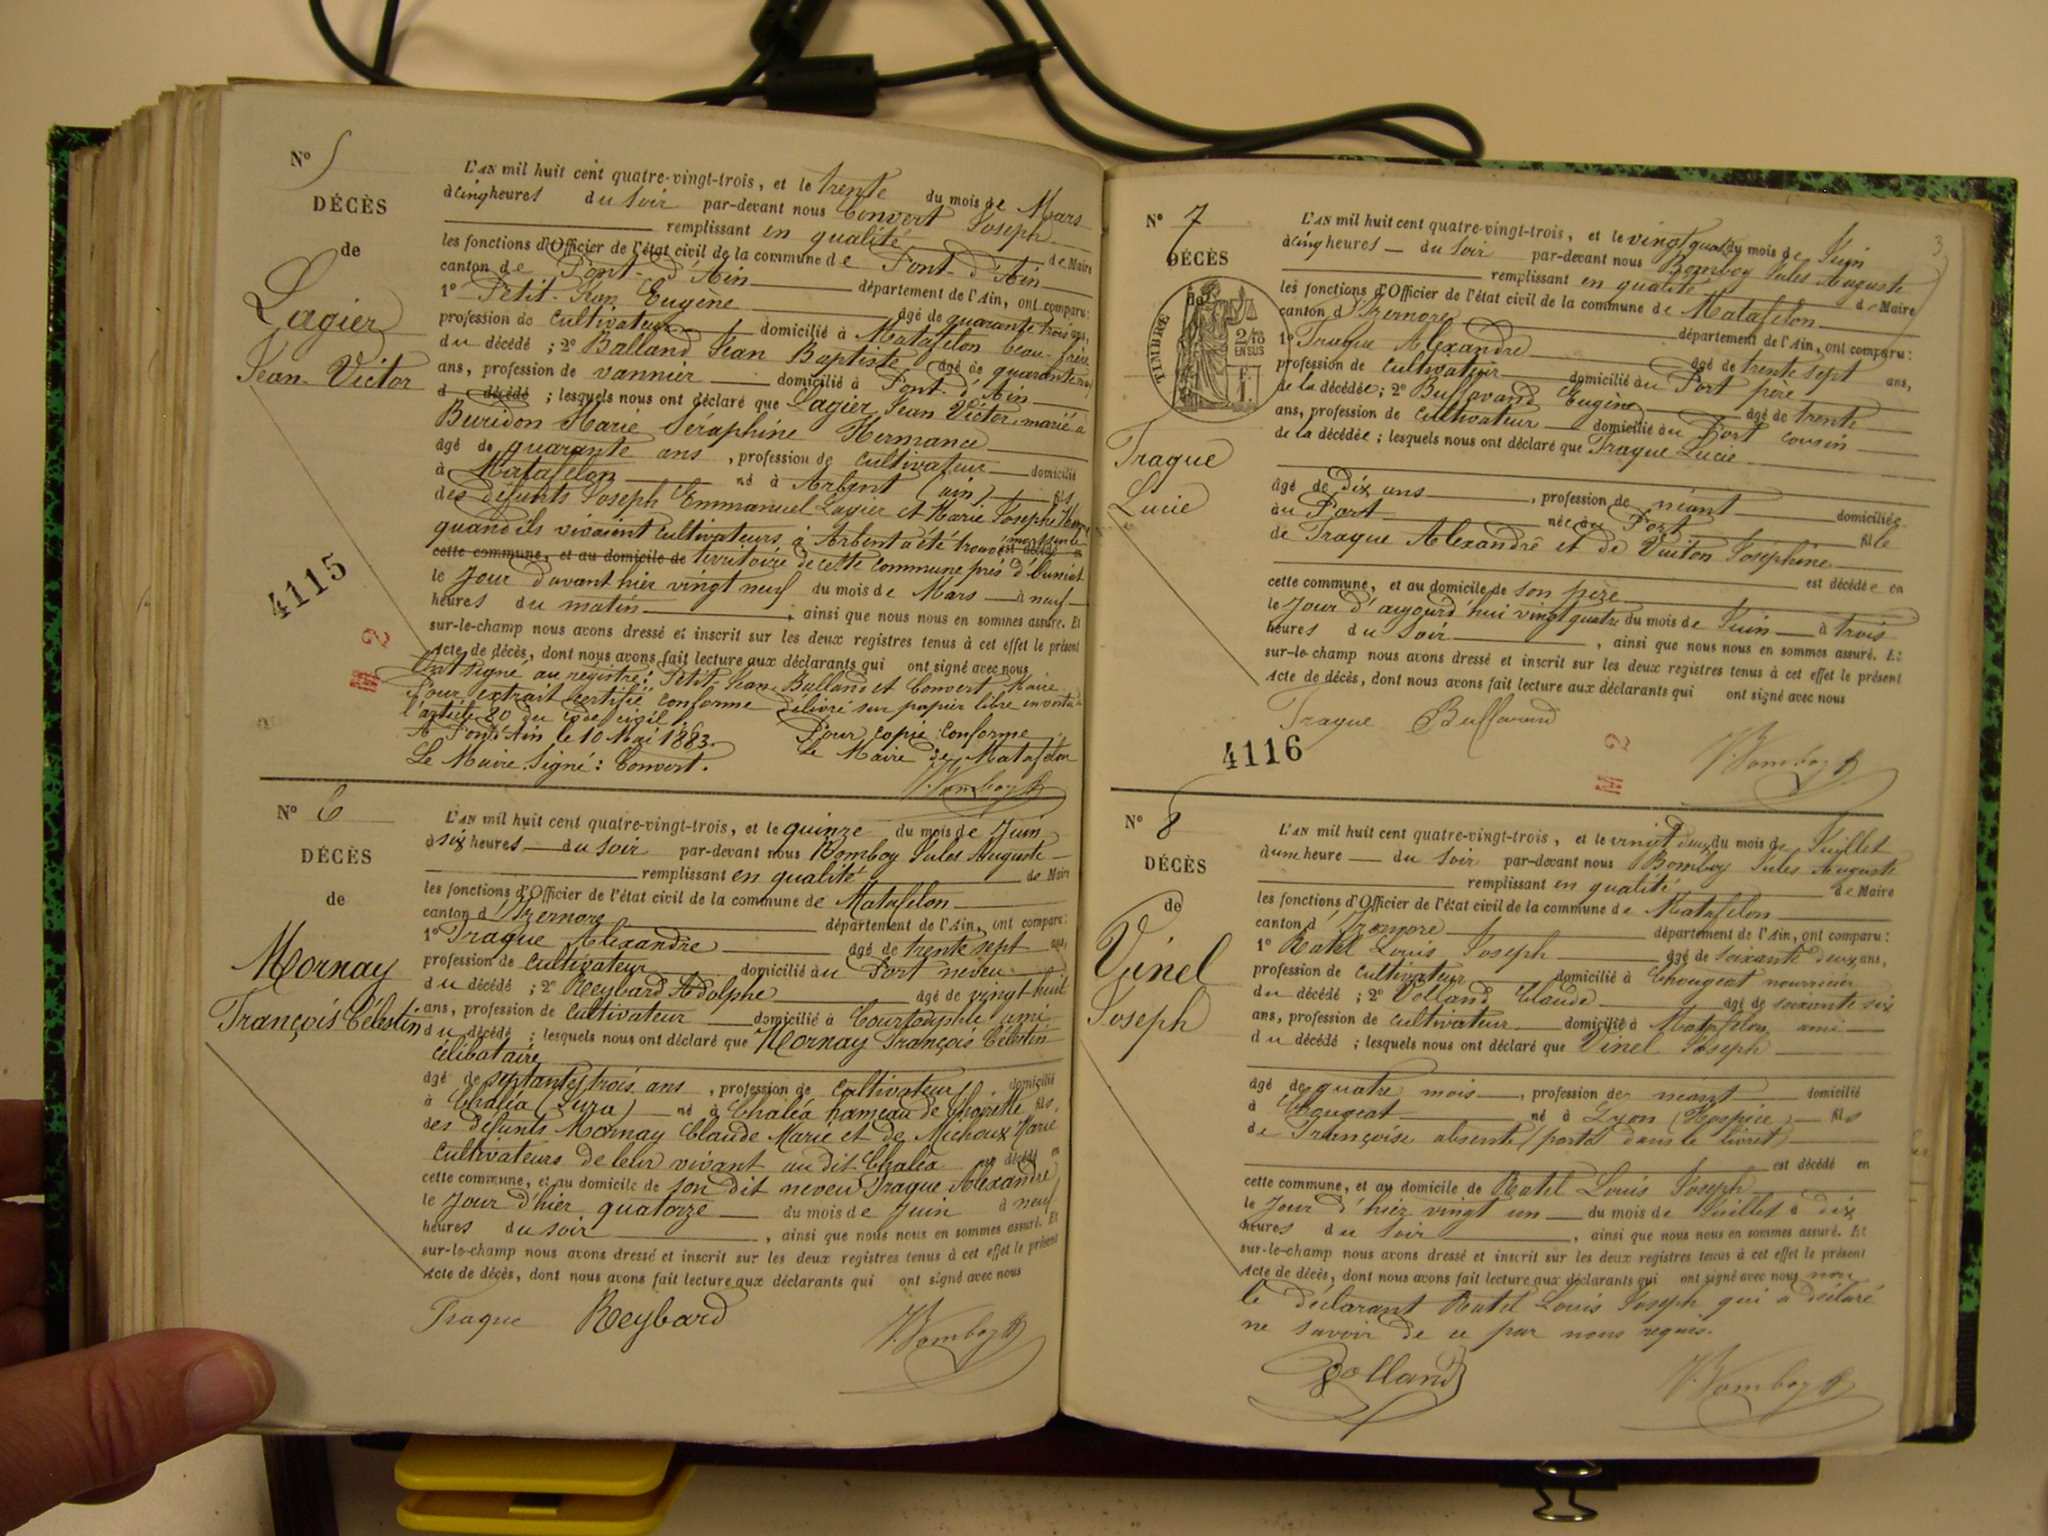 N° 5
DÉCÈS
de
Lagier
Jean-Victor
4115
L'AN mil huit cent quatre-vingt-trois, et le trente du mois de Mars
à cinq heures du soir par-devant nous Convert Joseph
remplissant en qualité de Maire
les fonctions d'Officier de l'état civil de la commune de Pont-d'Ain
canton de Pont-d'Ain département de l'Ain, ont comparu:
1° Petit-Jean Eugène âgé de quarante trois ans,
profession de cultivateur domicilié à Matafelon beau-frère
du décédé ; 2° Balland Jean Baptiste âgé de quarante
ans, profession de vannier domicilié à Pont-d'Ain
d décédé ; lesquels nous ont déclaré que Lagier Jean Victor, marié à
Buridon Marie Séraphine Hermance
âgé de quarante ans, profession de cultivateur domicilié
à Matafelon né à Arbent (ain) fils
des défunts Joseph Emmanuel Lagier et Marie Josephe
quand ils vivaient cultivateurs à Arbent a été trouvé mort sur le
cette commune, et au domicile de territoire de cette commune près d'
le jour d'avant hier vingt neuf du mois de Mars à neuf
heures du matin, ainsi que nous nous en sommes assuré. Et
sur-le-champ nous avons dressé et inscrit sur les deux registres tenus à cet effet le présent
acte de décès, dont nous avons fait lecture aux déclarants qui ont signé avec nous
Ont signé au registre: Petit-Jean, Balland et Convert Maire
Pour extrait certifié conforme délivré sur papier libre en vertu de
l'article 80 du code civil.
A Pont d'Ain le 10 Mai 1883.
Le Maire, Signé: Convert.
Pour copie conforme
Le Maire de Matafelon
Bomboy
N° 6
DÉCÈS
de
Mornay
François Célestin
L'AN mil huit cent quatre-vingt-trois, et le quinze du mois de Juin
à six heures du soir par-devant nous Bomboy Jules Auguste
remplissant en qualité de Maire
les fonctions d'Officier de l'état civil de la commune de Matafelon
canton d'Izernore département de l'Ain, ont comparu:
1° Trague Alexandre âgé de trente sept ans,
profession de cultivateur domicilié au Port neveu
du décédé ; 2° Reybard Adolphe âgé de vingt huit
ans, profession de cultivateur domicilié à Courtouphle ami
du décédé ; lesquels nous ont déclaré que Mornay François Célestin
célibataire
âgé de septante trois ans, profession de cultivateur domicilié
à Chaléa (Jura) né à Chaléa hameau de fils
des défunts Mornay Claude Marie et de Michoux Marie
cultivateurs de leur vivant au dit Chaléa est décédé en
cette commune, et au domicile de son dit neveu Trague Alexandre
le jour d'hier quatorze du mois de Juin à neuf
heures du soir, ainsi que nous nous en sommes assuré. Et
sur-le-champ nous avons dressé et inscrit sur les deux registres tenus à cet effet le présent
acte de décès, dont nous avons fait lecture aux déclarants qui ont signé avec nous
Trague Reybard Bomboy
3
N° 7
DÉCÈS
de
TIMBRE
2/10
EN SUS
Trague
Lucie
4116
L'AN mil huit cent quatre-vingt-trois, et le vingt quatre du mois de Juin
à cinq heures du soir par-devant nous Bomboy Jules Auguste
remplissant en qualité de Maire
les fonctions d'Officier de l'état civil de la commune de Matafelon
canton d'Izernore département de l'Ain, ont comparu:
1° Trague Alexandre âgé de trente sept ans,
profession de cultivateur domicilié au Port père
de la décédée ; 2° Buffavand Eugène âgé de trente
ans, profession de cultivateur domicilié au Port cousin
de la décédée ; lesquels nous ont déclaré que Trague Lucie
âgé de dix ans, profession de néant domiciliée
au Port née au Port fille
de Trague Alexandre et de Vuiton Joséphine
est décédée en
cette commune, et au domicile de son père
le jour d'aujourd'hui vingt quatre du mois de Juin à trois
heures du soir, ainsi que nous nous en sommes assuré. Et
sur-le-champ nous avons dressé et inscrit sur les deux registres tenus à cet effet le présent
acte de décès, dont nous avons fait lecture aux déclarants qui ont signé avec nous
Trague Buffavand
Bomboy
N° 8
DÉCÈS
de
Vinel
Joseph
L'AN mil huit cent quatre-vingt-trois, et le vingt deux du mois de Juillet
à une heure du soir par-devant nous Bomboy Jules Auguste
remplissant en qualité de Maire
les fonctions d'Officier de l'état civil de la commune de Matafelon
canton d'Izernore département de l'Ain, ont comparu:
1° Ratel Louis Joseph âgé de soixante deux ans,
profession de cultivateur domicilié à Chougeat nourricier
du décédé ; 2° Volland Claude âgé de soixante six
ans, profession de cultivateur domicilié à Matafelon ami
du décédé ; lesquels nous ont déclaré que Vinel Joseph
âgé de quatre mois, profession de néant domicilié
à Chougeat né à Lyon (Hospice) fils
de Françoise absente (porté dans le livret)
est décédé en
cette commune, et au domicile de Ratel Louis Joseph
le jour d'hier vingt un du mois de Juillet à dix
heures du soir, ainsi que nous nous en sommes assuré. Et
sur-le-champ nous avons dressé et inscrit sur les deux registres tenus à cet effet le présent
acte de décès, dont nous avons fait lecture aux déclarants qui ont signé avec nous non
le déclarant Ratel Louis Joseph qui a déclaré
ne savoir de ce par nous requis.
Volland Bomboy